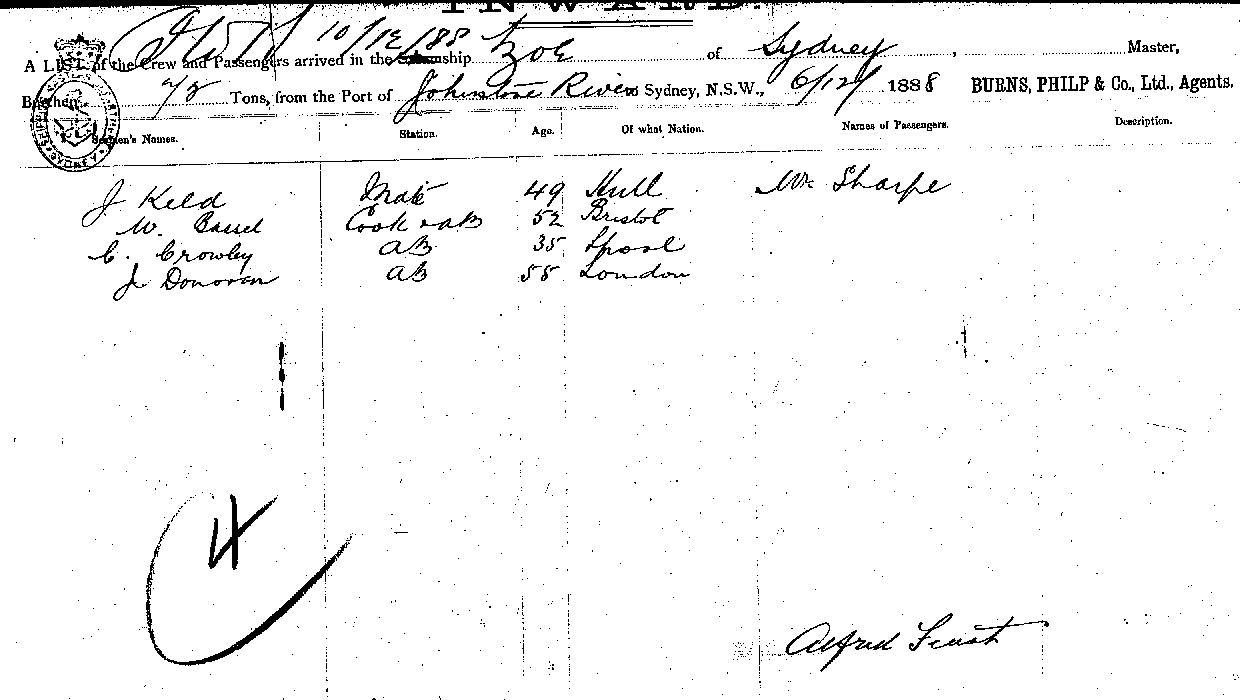 INWARD.
10/12/88
A LIST of the Crew and Passengers arrived in the Steamship Zoe of Sydney, Master,
Burthen 78 Tons, from the Port of Johnstone River to Sydney, N.S.W., 6/12/ 1888 BURNS, PHILP & Co., Ltd., Agents.
Seamen's Names. Station. Age. Of what Nation. Names of Passengers. Description.
J Keld Mate 49 Hull Mr Sharpe
W. Bassel Cook & AB 52 Bristol
C. Crowley AB 35 Lpool
J Donovan AB 55 London
4
Alfred